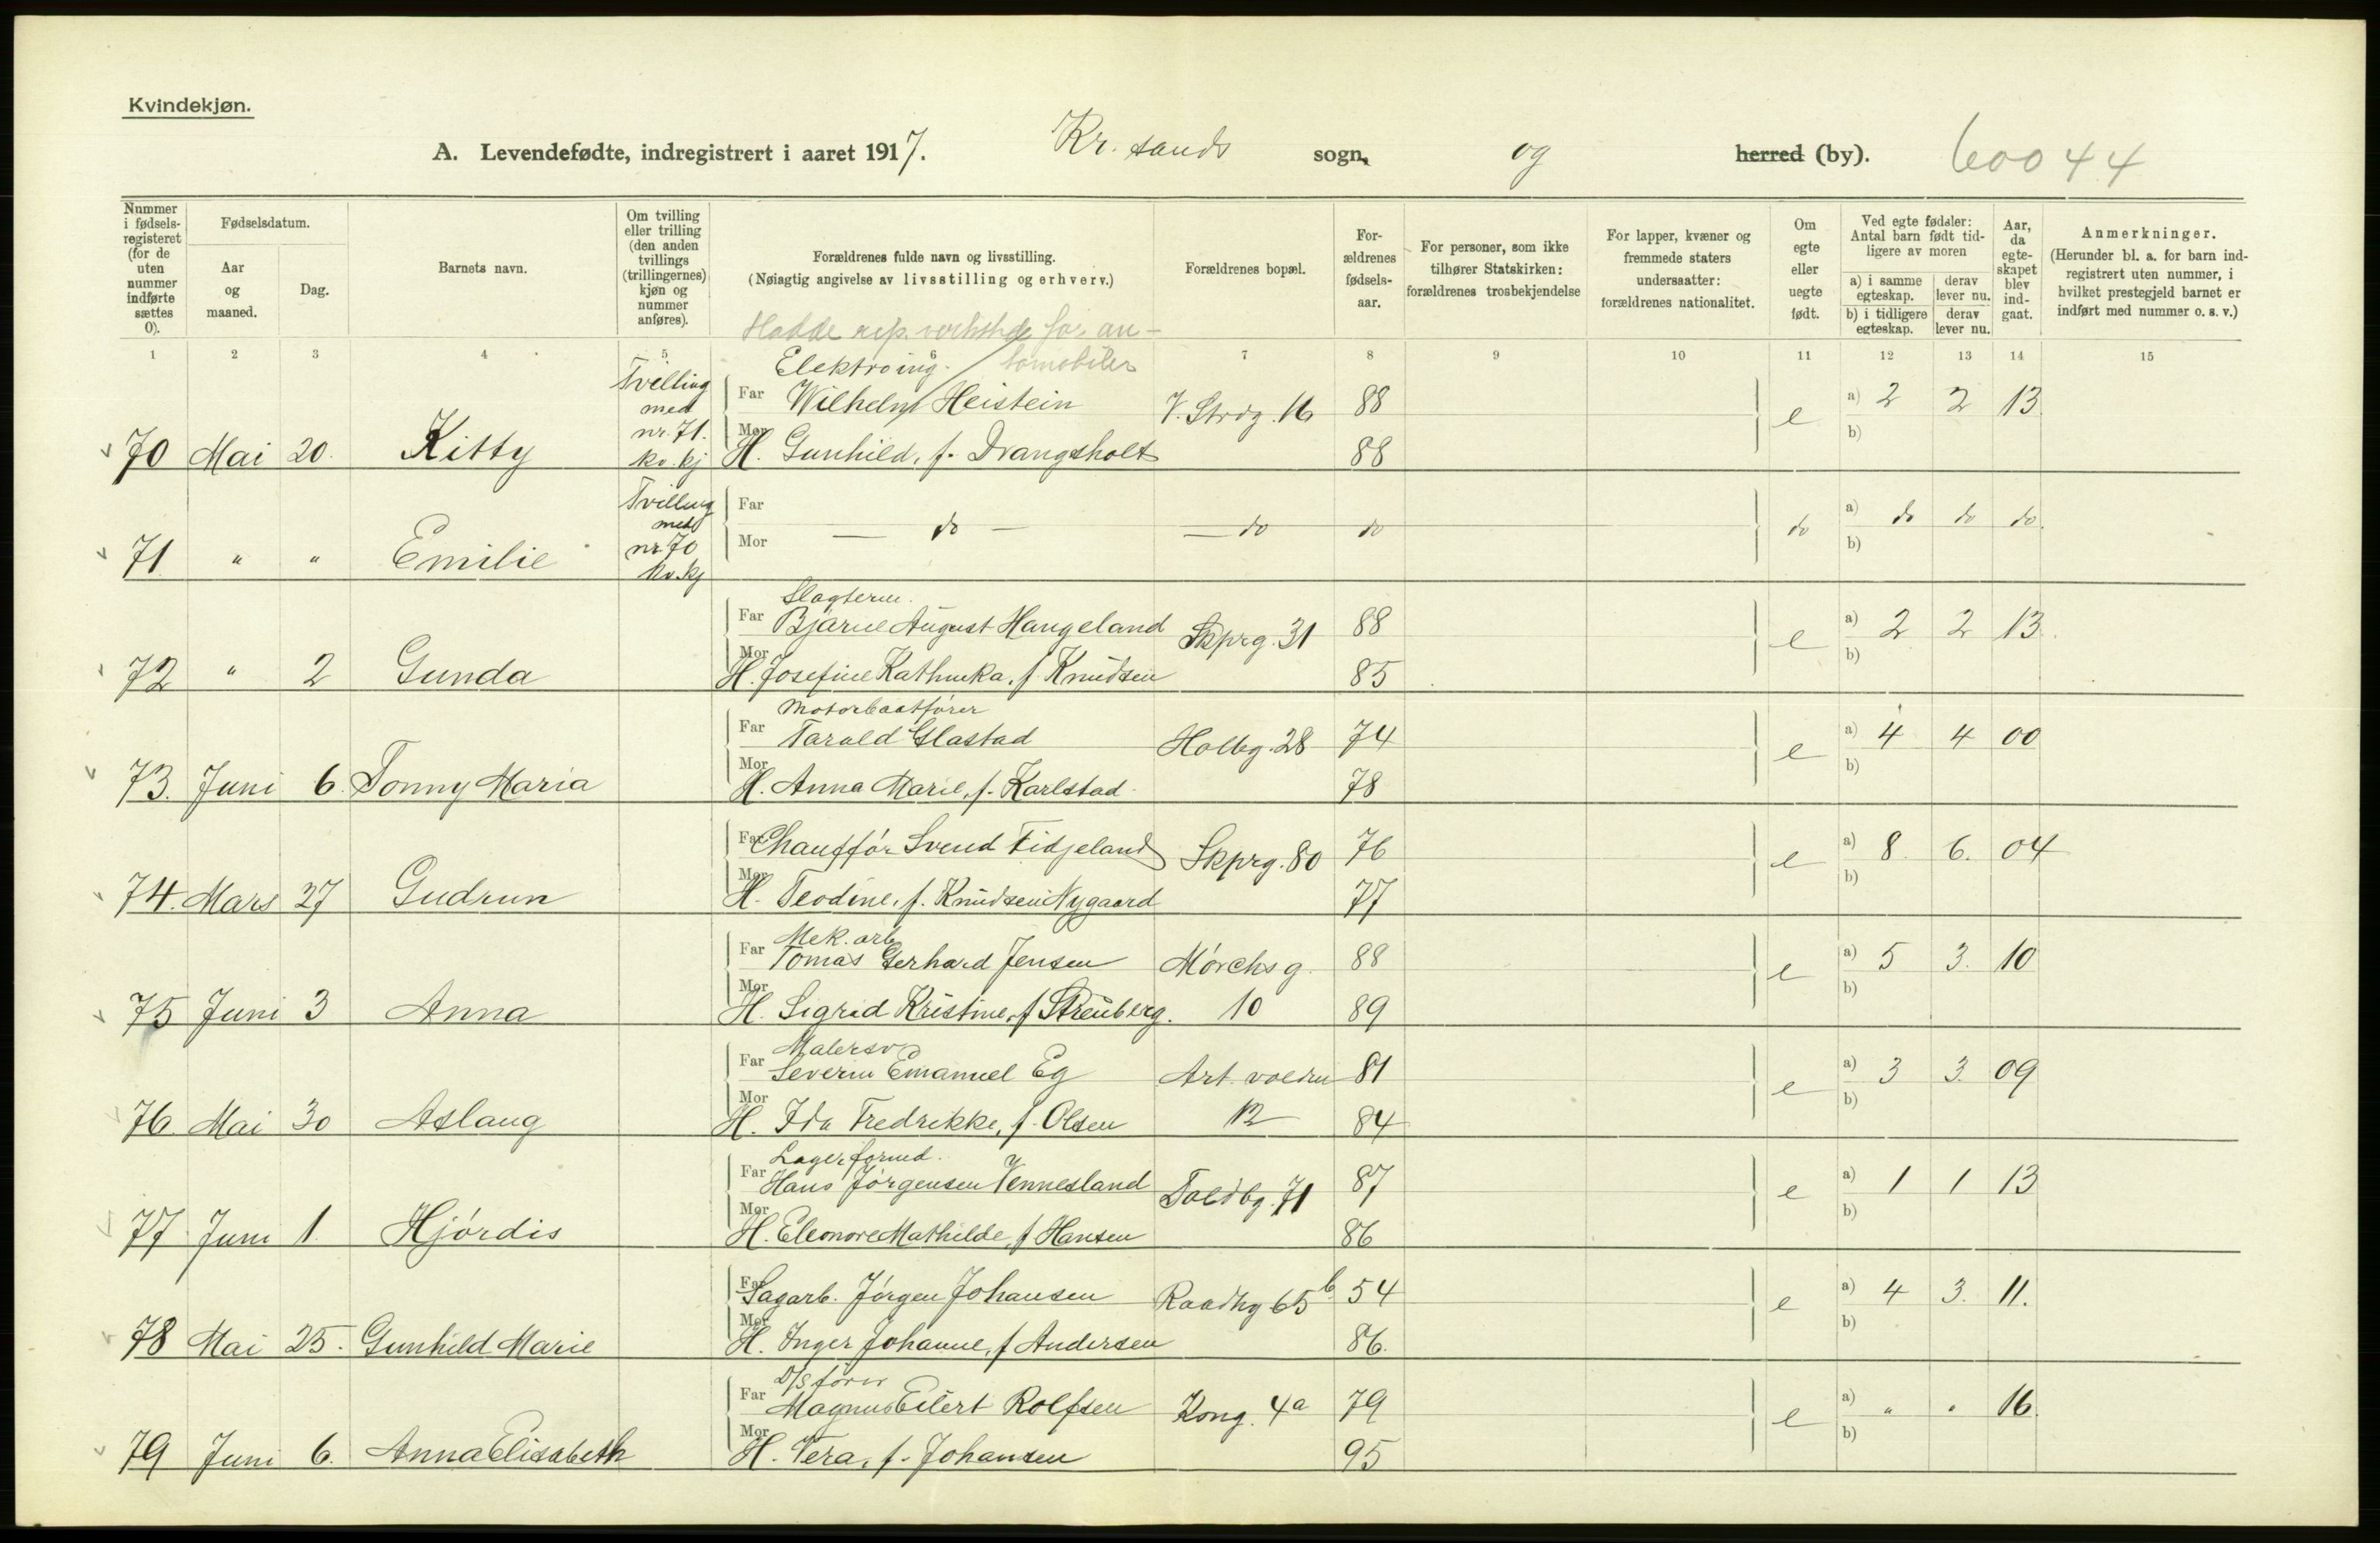 Kvindekjøn.
A. Levendefødte, indregistrert i aaret 1917. Kr. sands sogn, og herred (by). 60044
Nummer i fødsels-registeret (for de uten nummer indførte sættes 0).
Fødselsdatum.
Aar og maaned.
Dag.
Barnets navn.
Om tvilling eller trilling (den anden tvillings (trillingernes) kjøn og nummer anføres).
Forældrenes fulde navn og livsstilling.
(Nøiagtig angivelse av livsstilling og erhverv.)
Forældrenes bopæl.
For-ældrenes fødsels-aar.
For personer, som ikke tilhører Statskirken: forældrenes trosbekjendelse
For lapper, kvæner og fremmede staters undersaatter: forældrenes nationalitet.
Om egte eller uegte født.
Ved egte fødsler: Antal barn født tid-ligere av moren
a) i samme egteskap.
derav lever nu.
b) i tidligere egteskap.
derav lever nu.
Aar, da egte-skapet blev ind-gaat.
Anmerkninger.
(Herunder bl. a. for barn ind-registrert uten nummer, i hvilket prestegjeld barnet er indført med nummer o. s. v.)
1 2 3 4 5 6 7 8 9 10 11 12 13 14 15
Hadde rep. verksted for au-
tomobiler
Elektroing.
Tvilling
med
nr. 71.
kv. kj
Far Wilhelm Heistein V. Strdg. 16 88 e a) 2 2 13
70 Mai 20. Kitty Mor H. Gunhild, f. Drangsholt 88 b)
Tvilling
med
nr 70
kv. kj
Far
Mor — do — — do do do a) do do do.
71 " " Emilie b)
Slagterm.
Far Bjarne August Haugeland Skprg. 31 88 e a) 2 2 13.
72 " 2 Gunda Mor H. Josefine Kathinka, f. Knudsen 85 b)
Motorbaatfører
Far Tarald Glastad Holbg. 28 74 e a) 4 4 00
73. Juni 6. Tonny Maria Mor H. Anna Marie, f. Karlstad. 78 b)
Far Chauffør Svend Fidjeland Skprg. 80 76 e a) 8. 6. 04
74. Mars 27 Gudrun Mor H. Teodine, f. Knudsen Nygaard 77 b)
Mek. arb
Far Tomas Gerhard Jensen Mørchs g. 88 e a) 5 3. 10
75 Juni 3 Anna Mor H. Sigrid Kristine, f Streüberg. 10 89 b)
Malersv
Far Severin Emanuel Eg Art. volden 81 e a) 3 3. 09
76 Mai 30 Aslaug Mor H. Ida Fredrikke, f. Olsen 12 84 b)
Lagerformd.
Far Hans Jørgensen Vennesland Toldbg. 71 87 e a) 1 1 13
77 Juni 1. Hjørdis Mor H. Eleonore Mathilde, f Hansen 86 b)
Far Sagarb. Jørgen Johansen Raadhg 65 b 54 e a) 4 3. 11.
78 Mai 25. Gunhild Marie Mor H. Inger Johanne, f Andersen 86. b)
D/S fører
Far Magnus Eilert Rolfsen Kong. 4a 79 e a) " " 16.
79 Juni 6. Anna Elisabeth Mor H. Vera, f. Johansen 95 b)